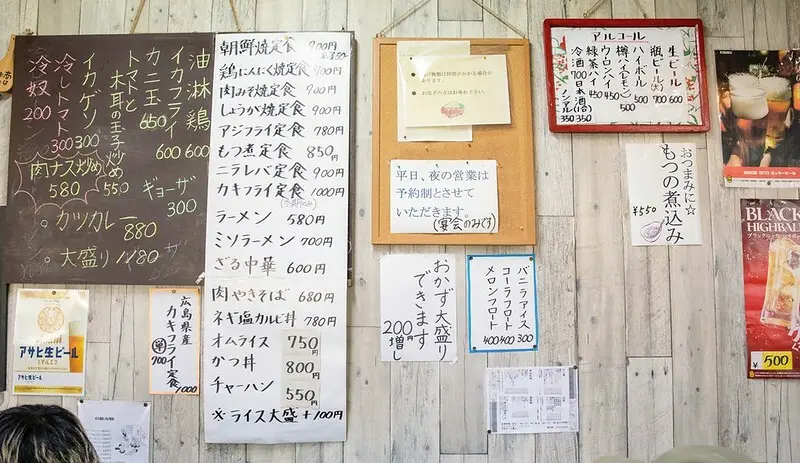 油淋鶏
イカフライ 600
カニ玉 650
トマトと
木耳の玉子炒め 550
イカゲソ 300
冷しトマト 300
冷奴 200
肉ナス炒め
580
ギョーザ
300
カツカレー
880
大盛り 1180
朝鮮焼定食 900円
鶏にんにく焼定食 900円
肉みそ焼定食 900円
しょうが焼定食 900円
アジフライ定食 780円
もつ煮定食 850円
ニラレバ定食 900円
カキフライ定食 1000円
ラーメン 580円
ミソラーメン 700円
ざる中華 600円
肉やきそば 680円
ネギ塩カルビ丼 780円
オムライス 750円
かつ丼 800円
チャーハン 550円
※ライス大盛 +100円
アサヒ生ビール
広島県産
カキフライ定食
1000
単 700
お急ぎの方はお尋ね下さい。
平日、夜の営業は
予約制とさせて
いただきます。
(宴会のみです)
おかず大盛り
できます
200円
増し
バニラアイス 300
コーラフロート 400
メロンフロート 400
アルコール
生ビール 600
瓶ビール(大) 700
ハイボール 500
樽ハイ(レモン) 500
ウーロンハイ 450
緑茶ハイ 450
日本酒(1合) 350
冷酒 700
ノンアル 350
おつまみに☆
もつの煮込み
¥550
BLACK
HIGHBALL
¥500